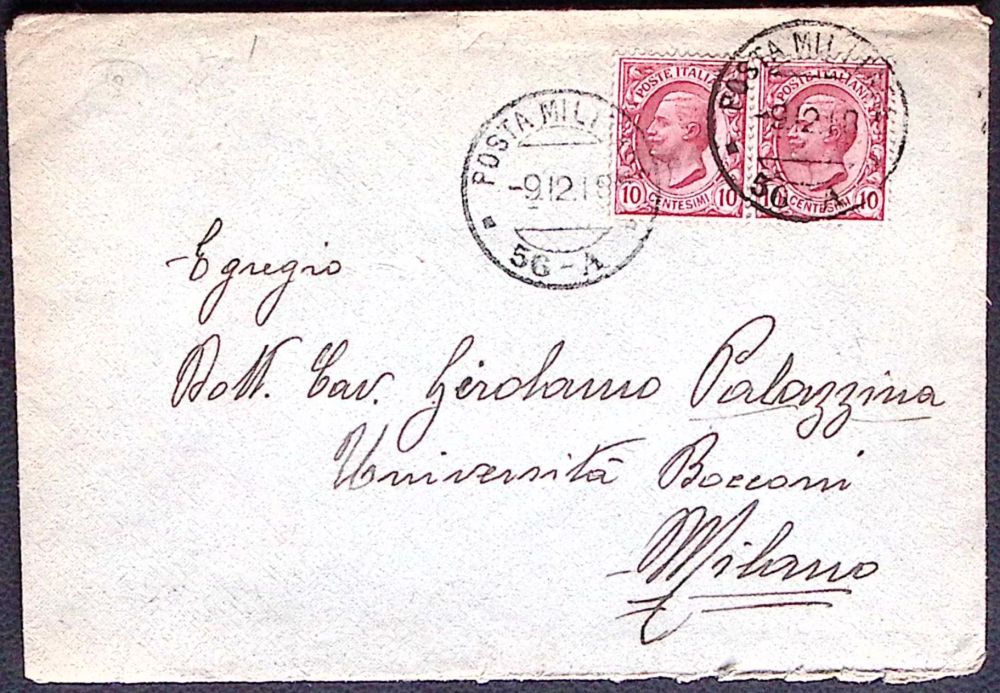 POSTE ITALIANE
10 CENTESIMI 10
POSTE ITALIANE
10 CENTESIMI 10
POSTA MILIT
-9.12.18
56-A
POSTA MILIT
-9.12.18
56 A
Egregio
Dott. Cav. Girolamo Palazzina
Università Bocconi
Milano